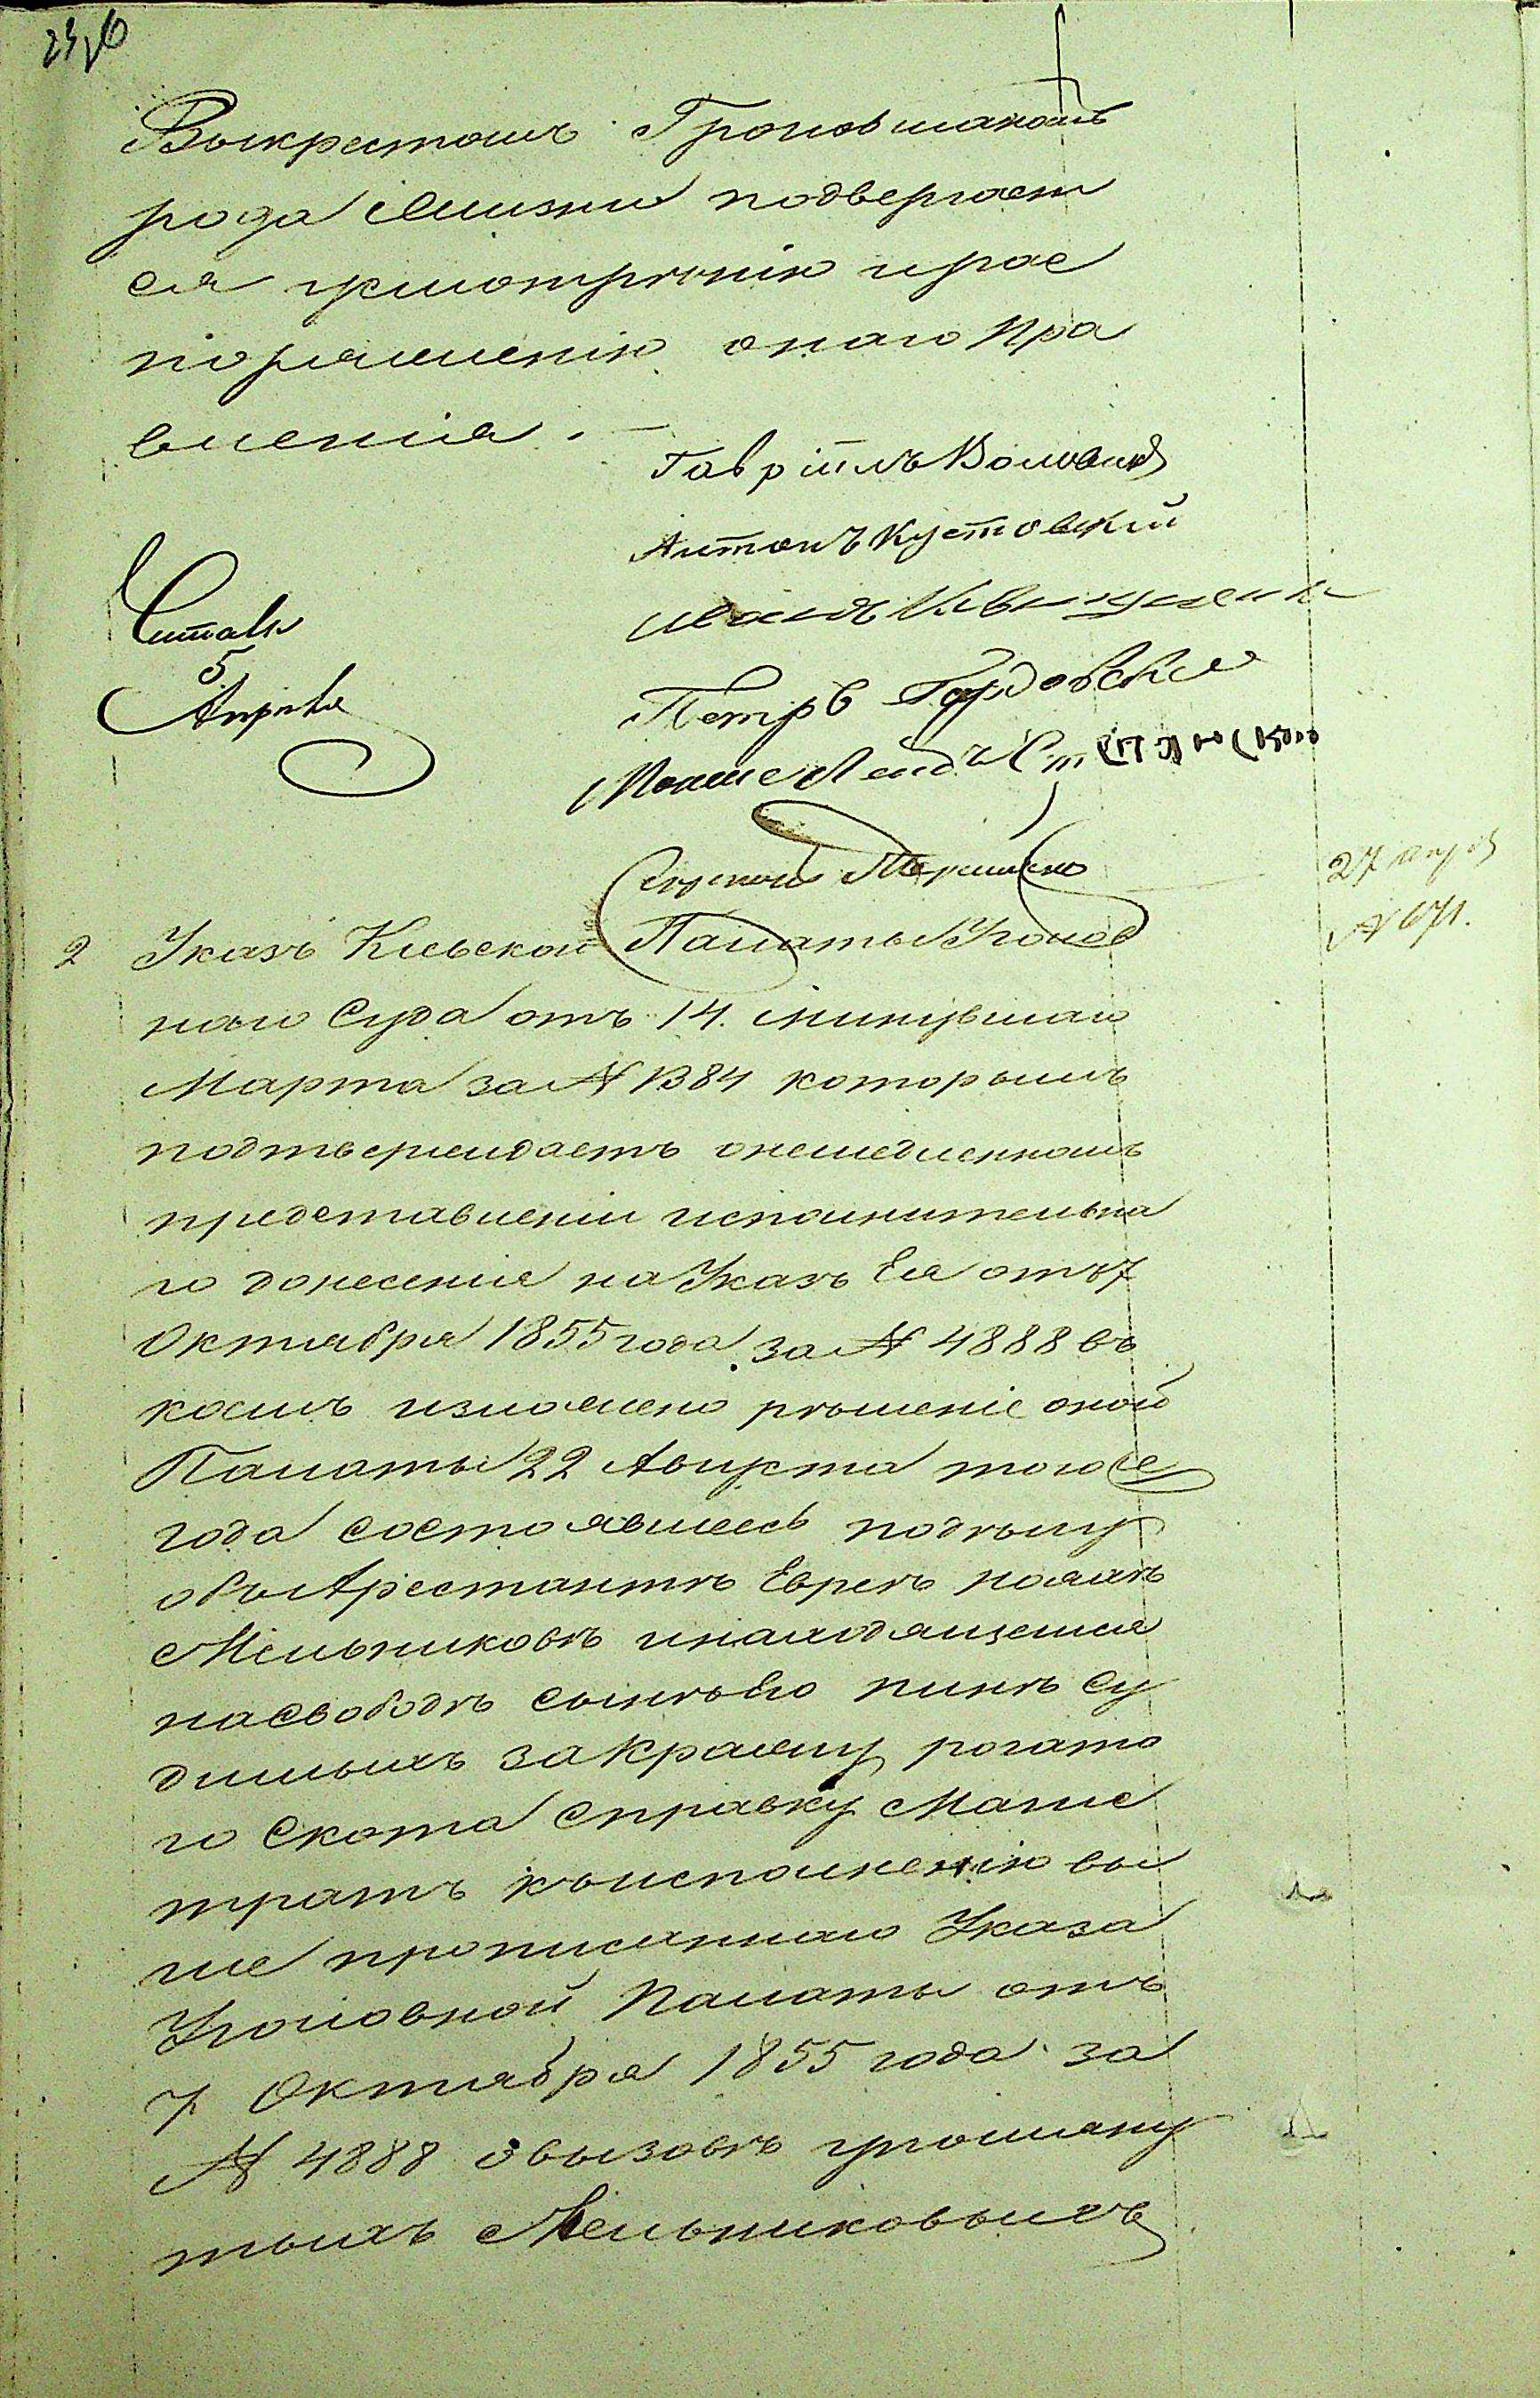 Выкрестомъ
рода жизни подвергает
ся усмотренію и рас
поряженію онаго Пра
вленія. —
Гавріилъ
Антонъ Кустовскій
Иванъ
Петръ
Мошко
Читалъ
5
Апреля
27 апр
№ 671.
2 Указъ Кіевской Палаты Уголов
наго Суда отъ 14. минувшаго
Марта за № 1384 которымъ
подтверждаетъ о немедленномъ
представленіи исполнительна
го донесенія на Указъ Ея отъ 7
Октября 1855 года за № 4888 въ
коемъ изложено рѣшеніе оной
Палаты 22 Августа того же
года состоявшееся по делу
объ Арестантѣ Евреѣ
Мельниковѣ и находящемся
на свободѣ сынѣ Его Пинѣ Су
димыхъ за кражу рогато
го Скота Справку Магис
тратъ къ исполненію вы
ше прописаннаго Указа
Уголовной Палаты отъ
7 Октября 1855 года за
№ 4888 о вызовѣ упомяну
тыхъ Мельниковыхъ